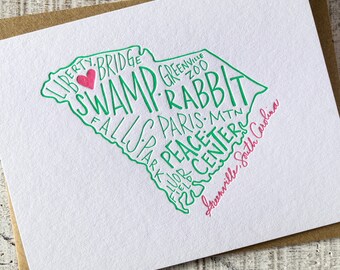 LIBERTY BRIDGE
GREENVILLE ZOO
SWAMP · RABBIT
FALLS PARK
PARIS · MTN
PEACE · CENTER
FLUOR FIELD
Greenville, South Carolina